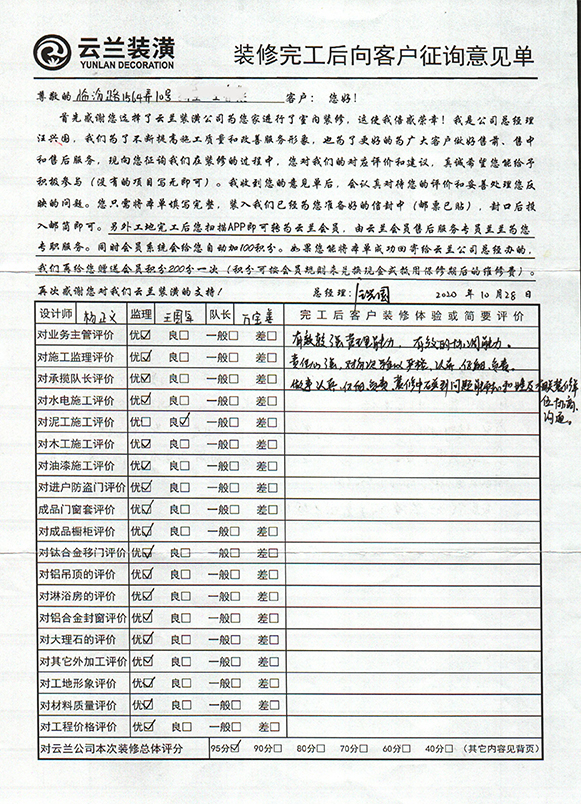 云兰装潢
YUNLAN DECORATION
装修完工后向客户征询意见单
尊敬的 临汾路1564弄10号 客户: 您好!
首先感谢您选择了云兰装潢公司为您家进行了室内装修,这使我倍感荣幸!我是公司总经理
汪兴国,我们为了不断提高施工质量和改善服务形象,也为了更好的为广大客户做好售前、售中
和售后服务,现向您征询我们在装修的过程中,您对我们的对应评价和建议,真诚希望您能给予
积极参与(没有的项目写无即可)。我收到您的意见单后,会认真对待您的评价和妥善处理您反
映的问题。您只需将本单填写完整,装入我们已经为您准备好的信封中(邮票已贴),封口后投
入邮筒即可。另外工地完工后您扫描APP即可转为云兰会员,由云兰会员售后服务专员兰兰为您
专职服务。同时会员系统会给您自动加100积分。如果您能将本单成功回寄给云兰公司总经办的,
我们再给您赠送会员积分200分一次(积分可按会员规则来兑换现金或抵用保修期后的维修费)。
再次感谢您对我们云兰装潢的支持! 总经理: 2020 年 10 月 28 日
设计师 杨正义 监理 王国军 队长 完工后客户装修体验或简要评价
对业务主管评价 优☑ 良□ 一般□ 差□ 有较强管理能力,有效的协调能力。
对施工监理评价 优☑ 良□ 一般□ 差□ 责任心强,认真、仔细、负责。
对承揽队长评价 优☑ 良□ 一般□ 差□ 做事认真、仔细、负责
对水电施工评价 优☑ 良□ 一般□ 差□ 协商
对泥工施工评价 优□ 良☑ 一般□ 差□ 沟通。
对木工施工评价 优☑ 良□ 一般□ 差□
对油漆施工评价 优☑ 良□ 一般□ 差□
对进户防盗门评价 优☑ 良□ 一般□ 差□
成品门窗套评价 优☑ 良□ 一般□ 差□
对成品橱柜评价 优☑ 良□ 一般□ 差□
对钛合金移门评价 优☑ 良□ 一般□ 差□
对铝吊顶的评价 优☑ 良□ 一般□ 差□
对淋浴房的评价 优☑ 良□ 一般□ 差□
对铝合金封窗评价 优☑ 良□ 一般□ 差□
对大理石的评价 优☑ 良□ 一般□ 差□
对其它外加工评价 优☑ 良□ 一般□ 差□
对工地形象评价 优☑ 良□ 一般□ 差□
对材料质量评价 优☑ 良□ 一般□ 差□
对工程价格评价 优☑ 良□ 一般□ 差□
对云兰公司本次装修总体评分 95分☑ 90分□ 80分□ 70分□ 60分□ 40分□ (其它内容见背页)